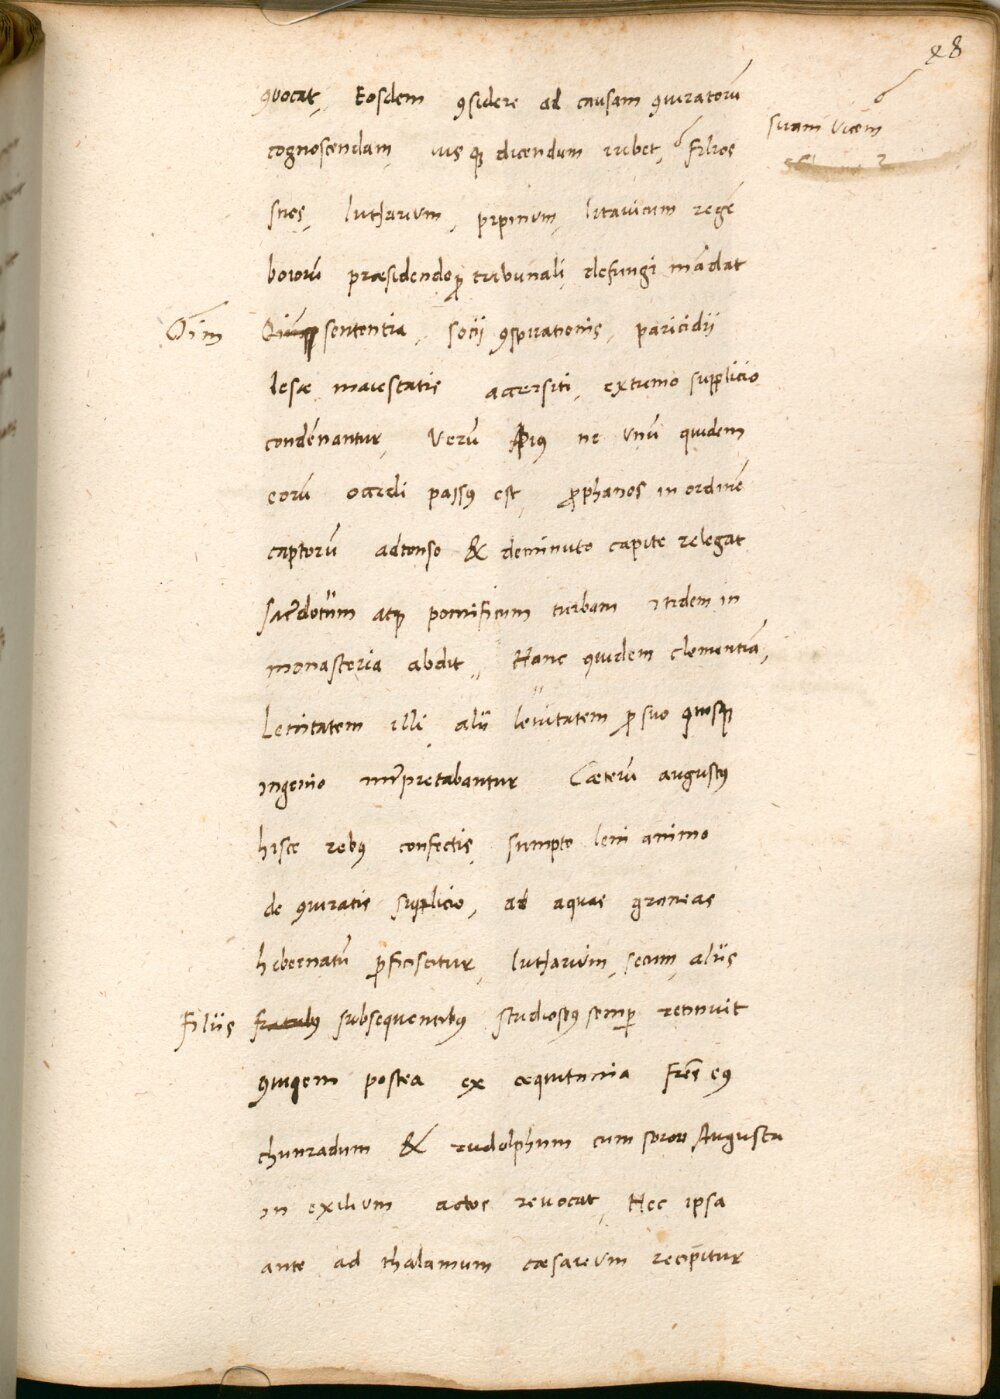 28
quocat, Eosdem ꝯsidere ad causam ꝯiuratorū
suam vicem
cognoscendam, ius qꝫ dicendum iubet, Filios
suos, lutharium, pipinum, litauicum regē
boiorū præsidendo ꝓ tribunali, defungi mādat
Oīm
sententia, socij ꝯspirationis, paricidij
lesæ maiestatis accersiti, extremo supplicio
condēnantur, Verū Pius ne vnū quidem
eorū occidi passꝰ est, ꝓphanos in ordinē
captorū adtonso & deminuto capite relegat
Sacerdotum atqꝫ pontificum turbam itidem in
monasteria abdit, Hanc quidem clementiā,
Lenitatem illi, alij leuitatem ꝓ suo quisqꝫ
ingenio interpretabantur Cæterū augustꝰ
hisce rebꝰ confectis, sumpto leni animo
de ꝯiuratis supplicio, ad aquas graneas
hibernatū ꝓficiscitur, lutharium, secum, alijs
Filijs fratribꝰ subsequentibꝰ studiosꝰ semꝑ retinuit
Quiqem postea ex æquitania frēs eꝰ
chunradum & rudolphum cum soror Augusta
in exilium actos reuocat, Hec ipsa
ante ad thalamum cæsareum recipitur